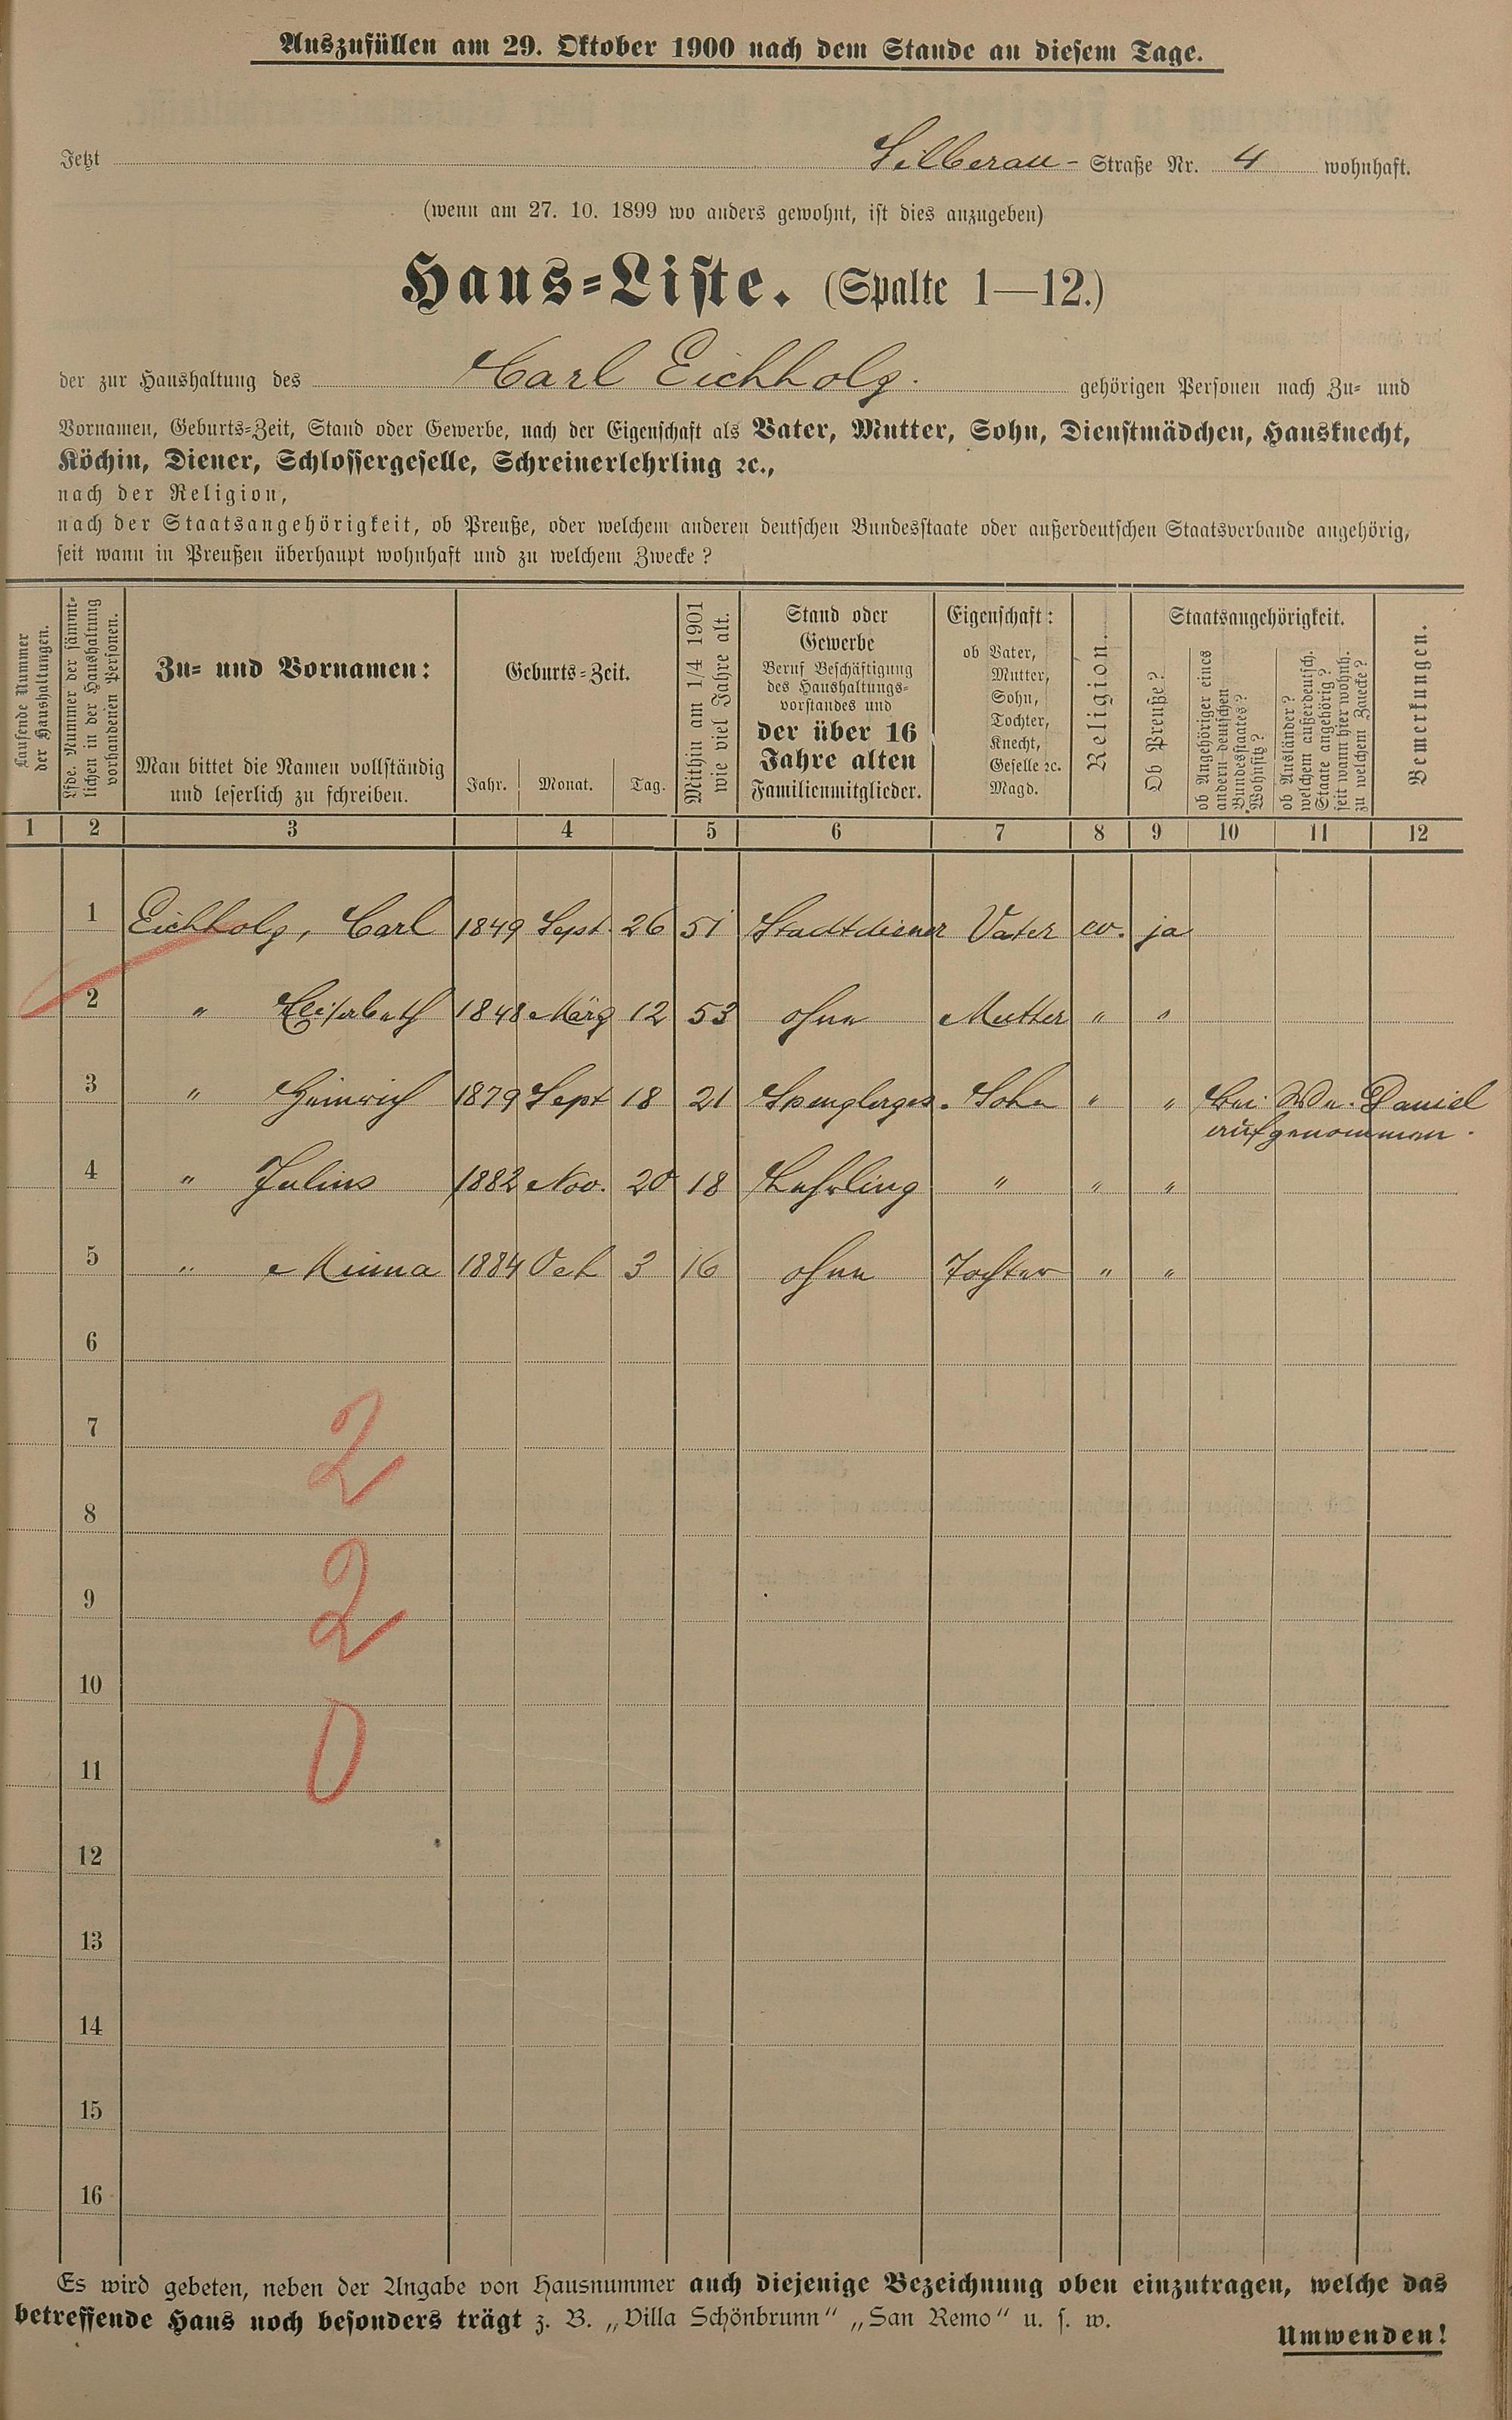 Auszufüllen am 29. Oktober 1900 nach dem Stande an diesem Tage.
Jetzt Silberau- Straße Nr. 4 wohnhaft.
(wenn am 27. 10. 1899 wo anders gewohnt, ist dies anzugeben)
Haus-Liste. (Spalte 1—12.)
der zur Haushaltung des Carl Eichholz. gehörigen Personen nach Zu- und
Vornamen, Geburts-Zeit, Stand oder Gewerbe, nach der Eigenschaft als Vater, Mutter, Sohn, Dienstmädchen, Hausknecht,
Köchin, Diener, Schlossergeselle, Schreinerlehrling ꝛc.,
nach der Religion,
nach der Staatsangehörigkeit, ob Preuße, oder welchem anderen deutschen Bundesstaate oder außerdeutschen Staatsverbande angehörig,
seit wann in Preußen überhaupt wohnhaft und zu welchem Zwecke?
Laufende Nummer
der Haushaltungen.
Lfde. Nummer der sämmt-
lichen in der Haushaltung
vorhandenen Personen.
Zu- und Vornamen:
Man bittet die Namen vollständig
und leserlich zu schreiben.
Geburts-Zeit.
Jahr. Monat. Tag.
Mithin am 1/4 1901
wie viel Jahre alt.
Stand oder
Gewerbe
Beruf Beschäftigung
des Haushaltungs-
vorstandes und
der über 16
Jahre alten
Familienmitglieder.
Eigenschaft:
ob Vater,
Mutter,
Sohn,
Tochter,
Knecht,
Geselle ꝛc.
Magd.
Religion.
Staatsangehörigkeit.
Ob Preuße?
ob Angehöriger eines
andern deutschen
Bundesstaates?
Wohnsitz?
ob Ausländer?
welchem außerdeutsch.
Staate angehörig?
seit wann hier wohnh.
zu welchem Zwecke?
Bemerkungen.
1 2 3 4 5 6 7 8 9 10 11 12
1 Eichholz, Carl 1849 Sept. 26 51 Stadtdiener Vater ev. ja
2 " Elisabeth 1848 März 12 53 ohne Mutter " "
3 " Heinrich 1879 Sept 18 21 Spenglerges. Sohn " " bei We. Daniel
aufgenommen.
4 " Julius 1882 Nov. 20 18 Lehrling " " "
5 " Minna 1884 Oct 3 16 ohne Tochter " "
6
7
2
8
9
2
10
11
0
12
13
14
15
16
Es wird gebeten, neben der Angabe von Hausnummer auch diejenige Bezeichnung oben einzutragen, welche das
betreffende Haus noch besonders trägt z. B. „Villa Schönbrunn“ „San Remo“ u. s. w.
Umwenden!